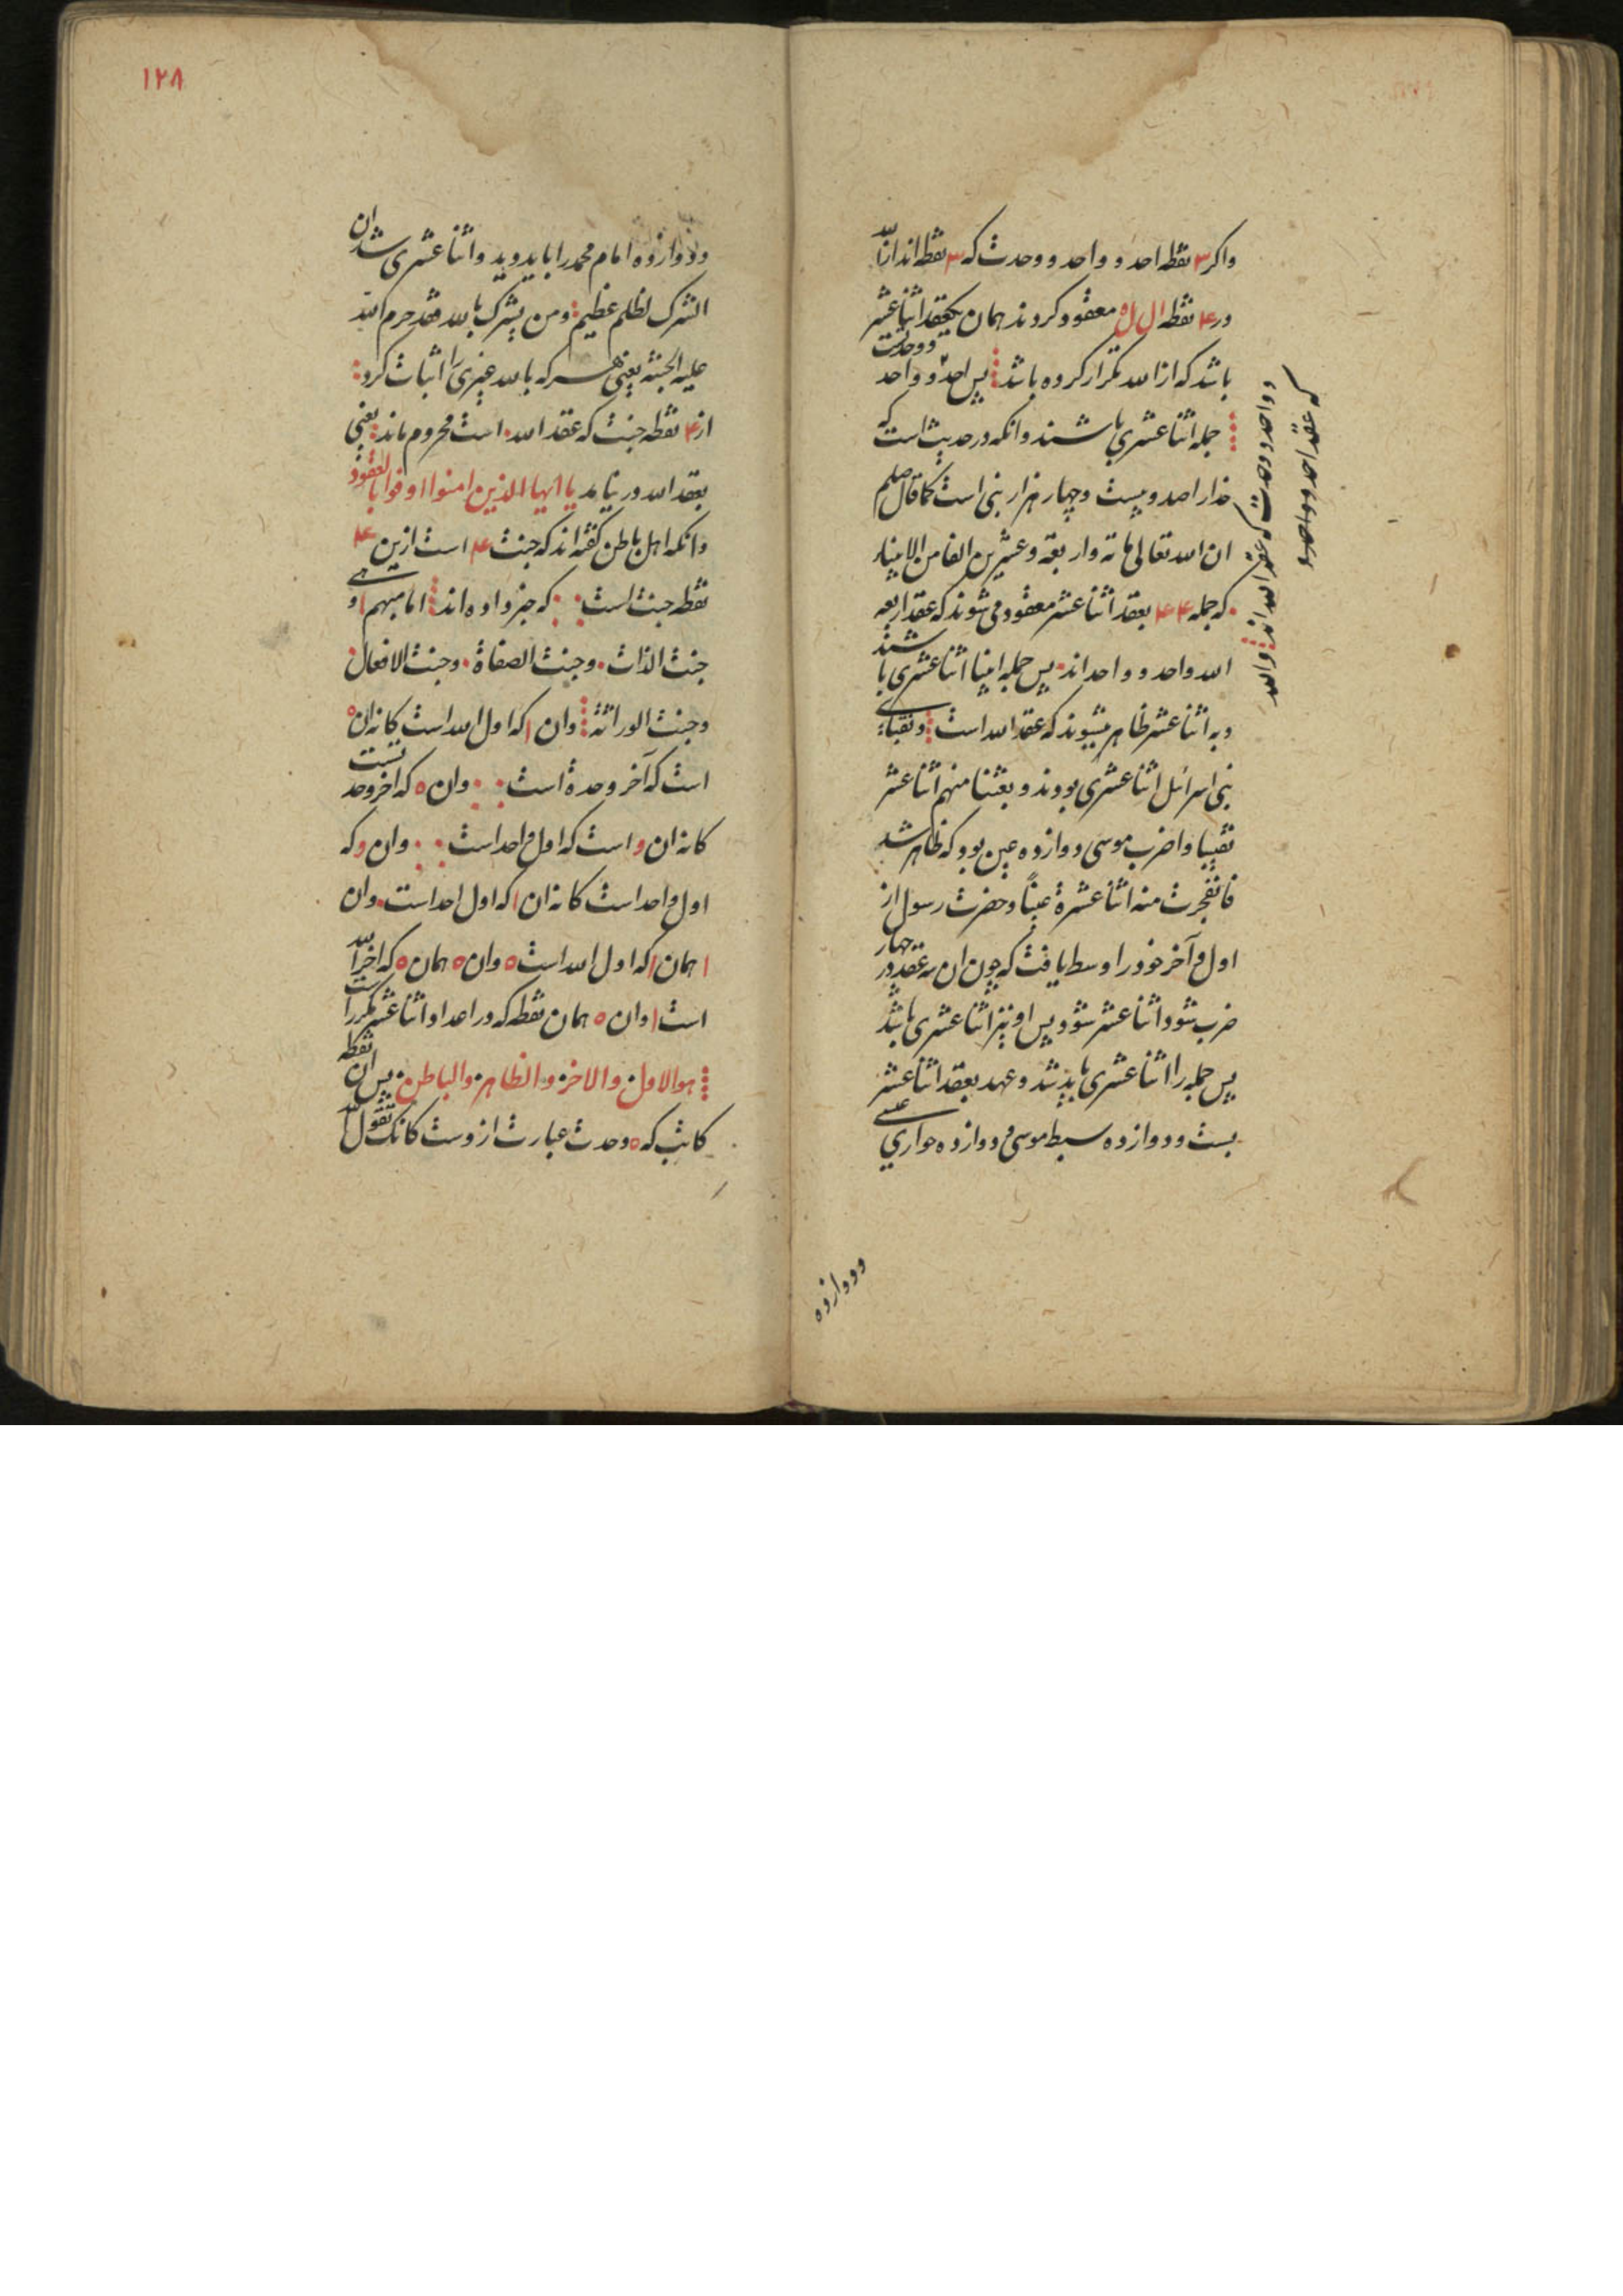 واکر ۳ نقطه احد و واحد و وحدت که ۳ نقطه اند از الله
در ۴ نقطه ا ل ل ه معقود کردند همان یکعقد اثناعشر
باشد که از الله تکرار کرده باشد پس احد و واحد و وحدت
جمله اثناعشری باشند و انکه در حدیث است که
خدا را صد و بیست و چهار هزار نبی است کما قال صلعم
ان الله تعالی مائة واربعة وعشرین الفا من الانبیاء
که جمله ۴ ۴ ۴ بعقد اثناعشر معقود می شوند که عقد اربعه
الله واحد و واحد اند پس جمله انبیا اثناعشری باشند
و به اثناعشر ظاهر میشوند که عقد الله است و نقباء
بنی اسرائل اثناعشری بودند و بعثنا منهم اثناعشر
نقیبا و اضرب موسی دوازده عین بود که ظاهر شد
فانفجرت منه اثناعشرة عینا و حضرت رسول از
اول و آخر خود را وسط یافت که چون ان سه عقد در چهار
ضرب شود اثناعشر شود پس او نیز اثناعشری باشد
پس جمله را اثناعشری باید شد و عهد بعقد اثناعشر
بست و دوازده سبط موسی و دوازده حواری عیسی
ودوازده
ودوازده امام محمد را باید دید و اثناعشری شد ان
الشرک لظلم عظیم ومن یشرک بالله فقد حرم الله
علیه الجنة یعنی هر که بالله غیری را اثبات کرد
از ۴ نقطه جنت که عقد الله است محروم ماند یعنی
بعقد الله در نیامد یا ایها الذین امنوا اوفوا بالعقود
وانکه اهل باطن کفته اند که جنت ۴ است ازین ۴
نقطه جنت است که خبر داده اند اما مبهم او
جنت الذات وجنت الصفاة وجنت الافعال
وجنت الوراثة وان ا که اول الله است کانه ان ه
است که آخر وحدة است وان ه که اخر وحدتست
کانه ان و است که اول واحد است وان و که
اول واحد است کانه ان ا که اول احد است وان
ا همان ا که اول الله است ه وان ه همان ه که اخر الله
است ا وان ه همان نقطه که در اعداد اثناعشر مکرر است
هو الاول والاخر والظاهر والباطن پس ان نقطه
کاتب که ه وحدت عبارت ازوست کانک تقول
۱۲۸